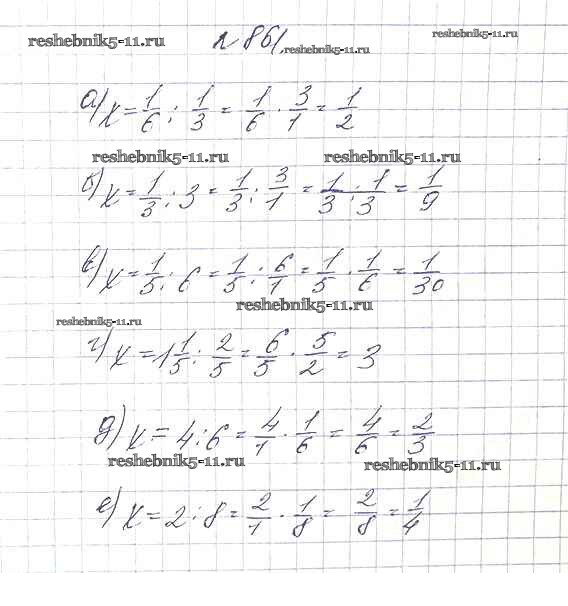 reshebnik5-11.ru № 861. reshebnik5-11.ru reshebnik5-11.ru
а) x = 1/6 : 1/3 = 1/6 · 3/1 = 1/2
reshebnik5-11.ru reshebnik5-11.ru
б) x = 1/3 : 3 = 1/3 : 3/1 = 1/3 · 1/3 = 1/9
в) x = 1/5 : 6 = 1/5 : 6/1 = 1/5 · 1/6 = 1/30
reshebnik5-11.ru
reshebnik5-11.ru
г) x = 1 1/5 : 2/5 = 6/5 · 5/2 = 3
д) x = 4 : 6 = 4/1 · 1/6 = 4/6 = 2/3
reshebnik5-11.ru reshebnik5-11.ru
е) x = 2 : 8 = 2/1 · 1/8 = 2/8 = 1/4